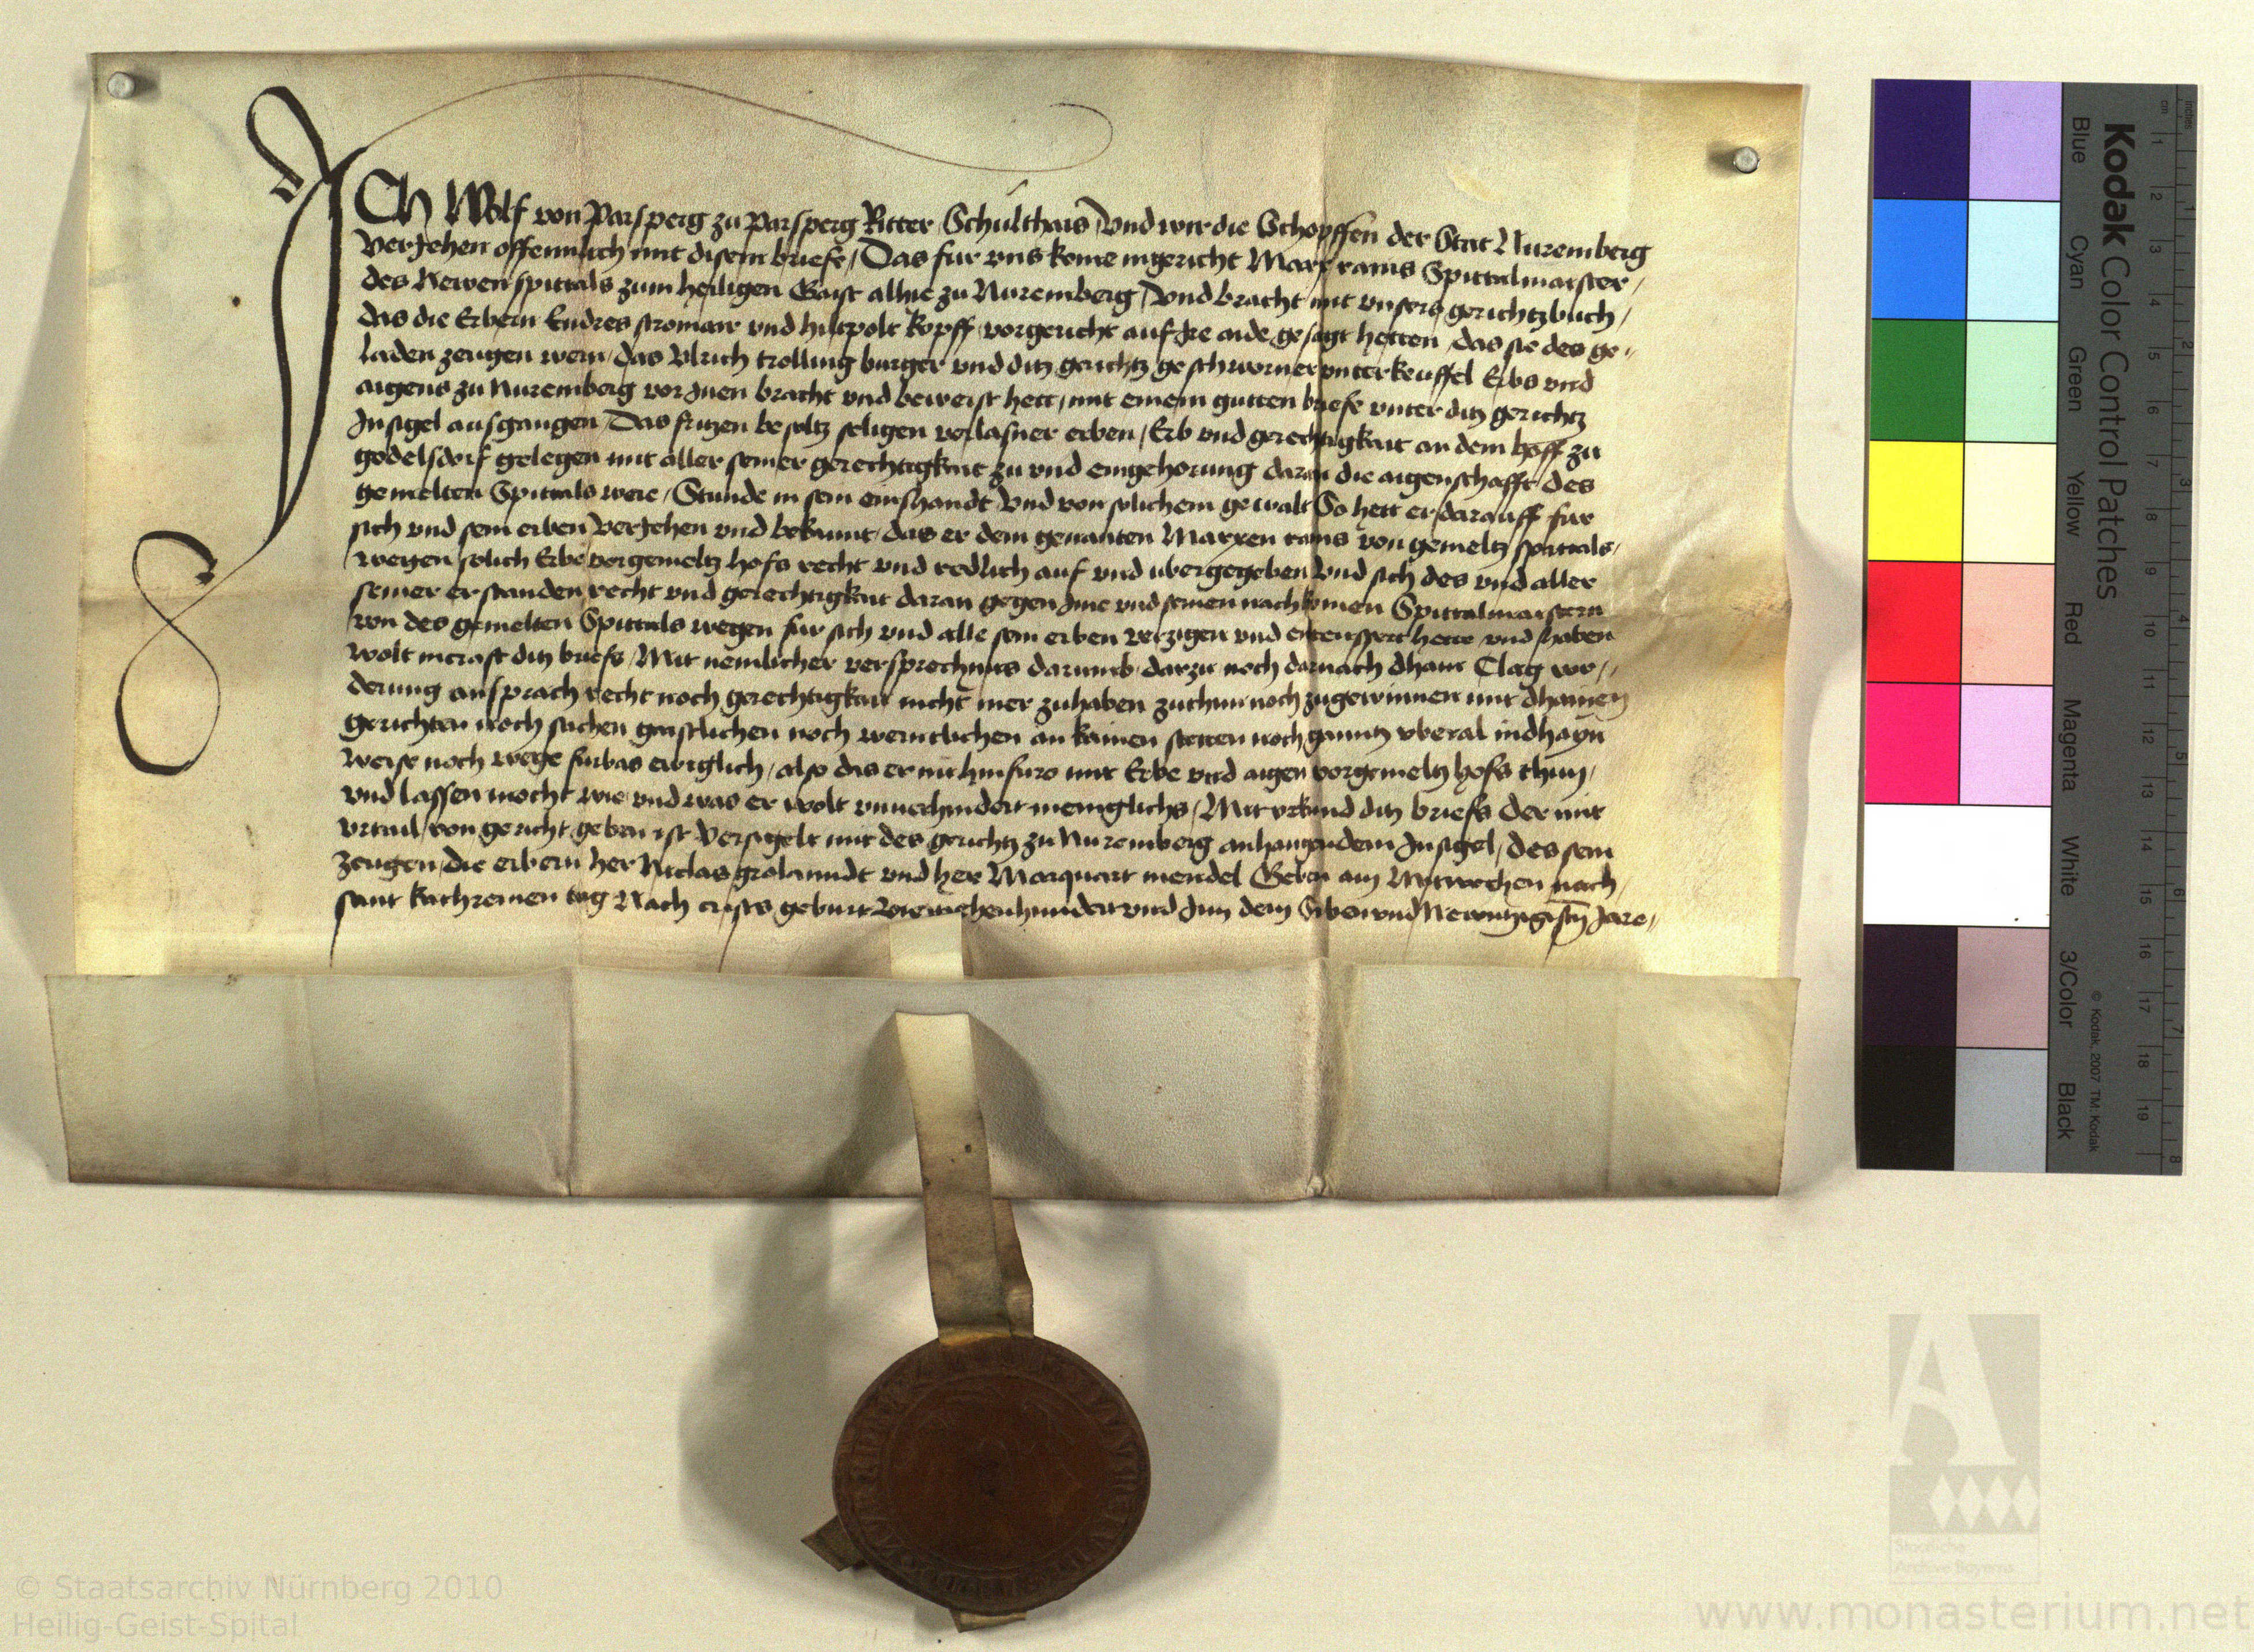 ICh Wolf von Parsperg zu Parsperg Ritter Schulthais Vnd wir die Schopffen der Stat Nuremberg
Veriehen offennlich mit disem briefe / Das fur vns kome in gericht Marx rams Spittalmaister /
des Newen spittals zum heiligen Gaist alhie zu Nuremberg / Vnd bracht mit vnsers gerichtzbuch /
das die Erbern Endres stromair vnd hiltpolt kopff vorgericht auf Jre aide gesagt hetten das sie des ge //
laden zeugen wern / das Vlrich trolling burger vnd ditz gerichtz geschworner vnterkeuffel Erbs vnd
aigens zu Nuremberg vor Jnen bracht vnd beweist hett / mit einem gutten briefe vnter ditz gerichtz
Jnsigel ausgangen / Das fritzen besoltz seligen verlasner erben / Erb vnd gerechtigkait an dem hoff zu
godelsdorf gelegen mit aller seiner gerechtigkait zu vnd eingehorung daran die aigenschafft des
gemelten Spittals were / Stunde in sein einshandt Vnd von solichem gewalt So hett er darauff fur
sich vnd sein erben Veriehen vnd bekannt das er dem genanten Marxen rams von gemeltz spittals /
wegen solich Erbe vorgemeltz hofs recht vnd redlich auf vnd vbergegeben Vnd sich des vnd aller
seiner erstanden recht vnd gerechtigkait daran gegen Jme vnd seinen nachkomen Spittalmaistern
von des gemelten Spittals wegen fur sich vnd alle sein erben verzigen vnd enteussert hette vnd haben
wolt in craft ditz briefs / Mit nemlicher versprechnus darumb darzu noch darnach dhain Clag vor //
derung ansprach recht noch gerechtigkait nicht mer zuhaben zuthun noch zugewinnen mit dhainen
gerichten noch sachen gaistlichen noch werntlichen an kainen stetten noch ganntz vberal in dhayn
Weise noch wege furbas ewiglich / also das er nu hinfuro mit Erbe vnd aigen vorgemeltz hofs thun /
vnd lassen mocht wie vnd was er wolt vnuerhindert meniglichs / Mit vrkund ditz briefs der mit
vrtail von gericht geben ist Versigelt mit des gerichtz zu Nuremberg anhangendem Jnsigel / des sein
Zeugen die erbern her Niclas grolanndt vnd her Marquart mendel Geben am Mitwochen nach /
sant kathreinen tag Nach cristi geburt Viertzehenhundert vnd Jnn dem Siben vnd Newntzigisten Jare //
Kodak Color Control Patches
Blue Cyan Green Yellow Red Magenta White 3/Color Black
© Kodak, 2007 TM: Kodak
inches 1 2 3 4 5 6 7 8
cm 1 2 3 4 5 6 7 8 9 10 11 12 13 14 15 16 17 18 19
© Staatsarchiv Nürnberg 2010
Heilig-Geist-Spital
Staatliche
Archive Bayerns
www.monasterium.net